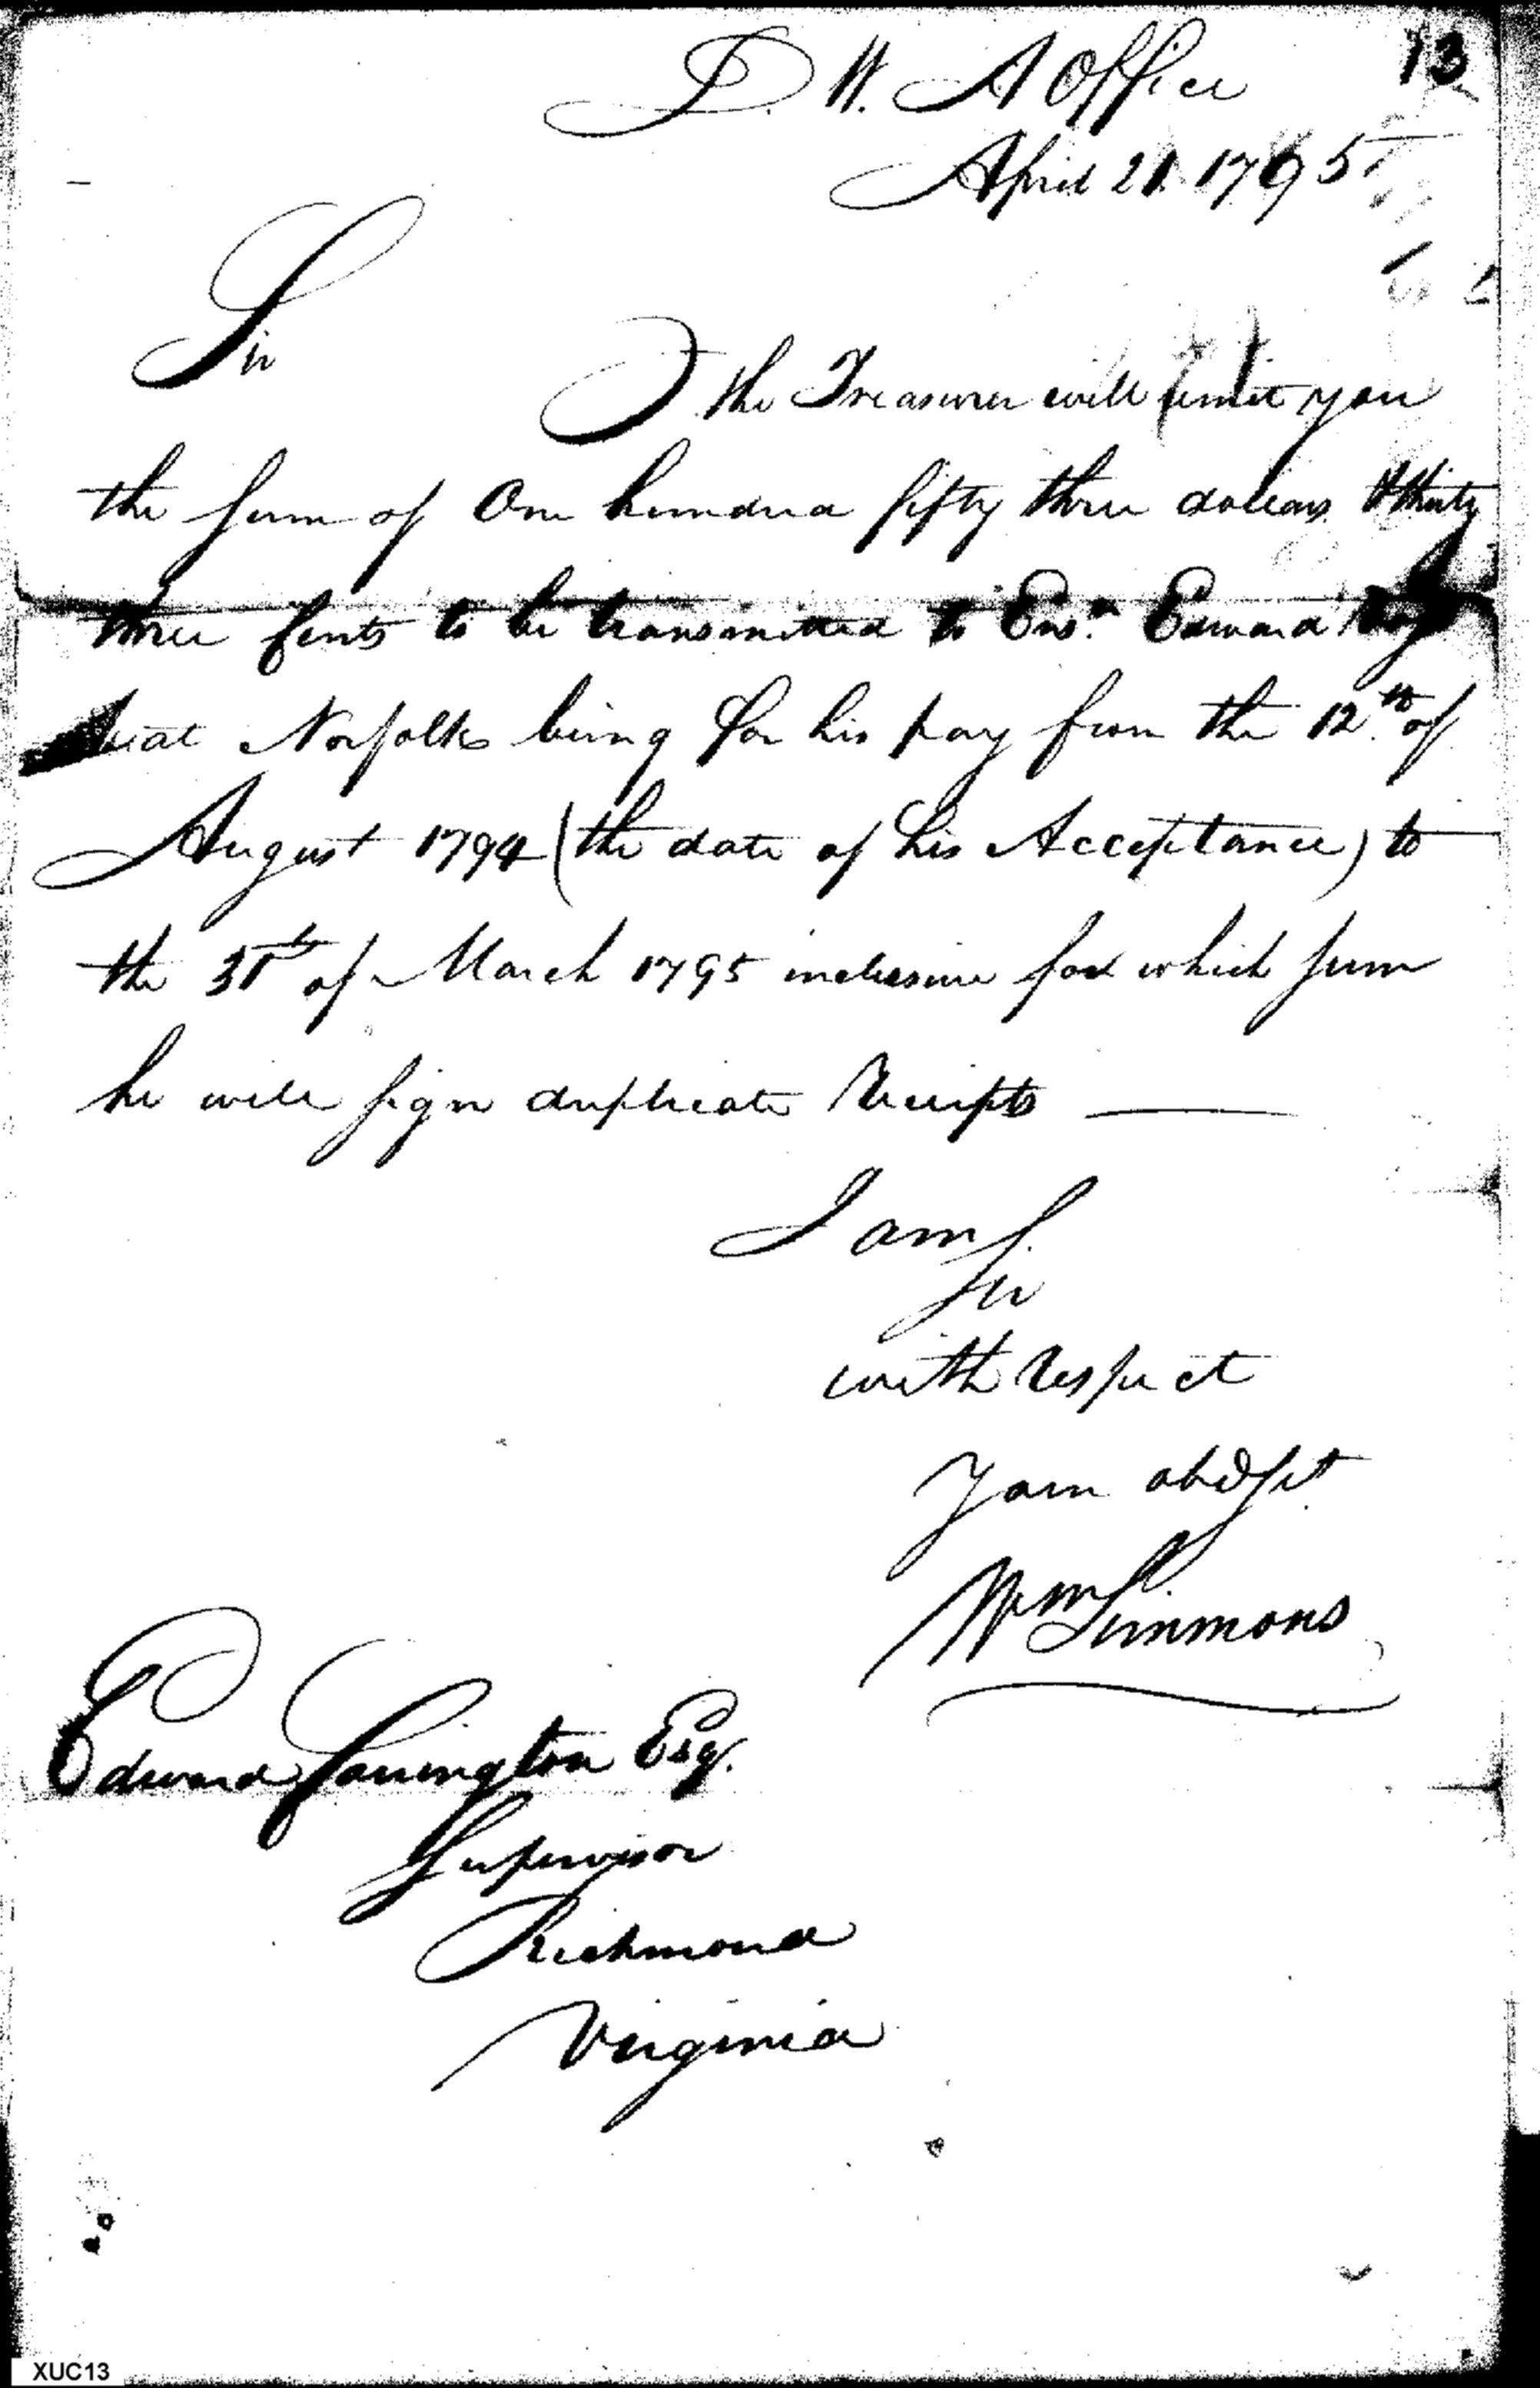 D. W. A Office
13
April 21. 1795
Sir
the Treasurer will remit you
the sum of One hundred fifty three dollars & thirty
three Cents to be transmitted to Ens.n Edward
at Norfolk being for his pay from the 12.th of
August 1794 (the date of his Acceptance) to
the 31st of March 1795 inclusive for which sum
he will sign duplicate Receipts
I am
Sir
with respect
Your obd Sert
Wm Simmons
Edward Carrington Esq.
Supervisor
Richmond
Virginia
XUC13